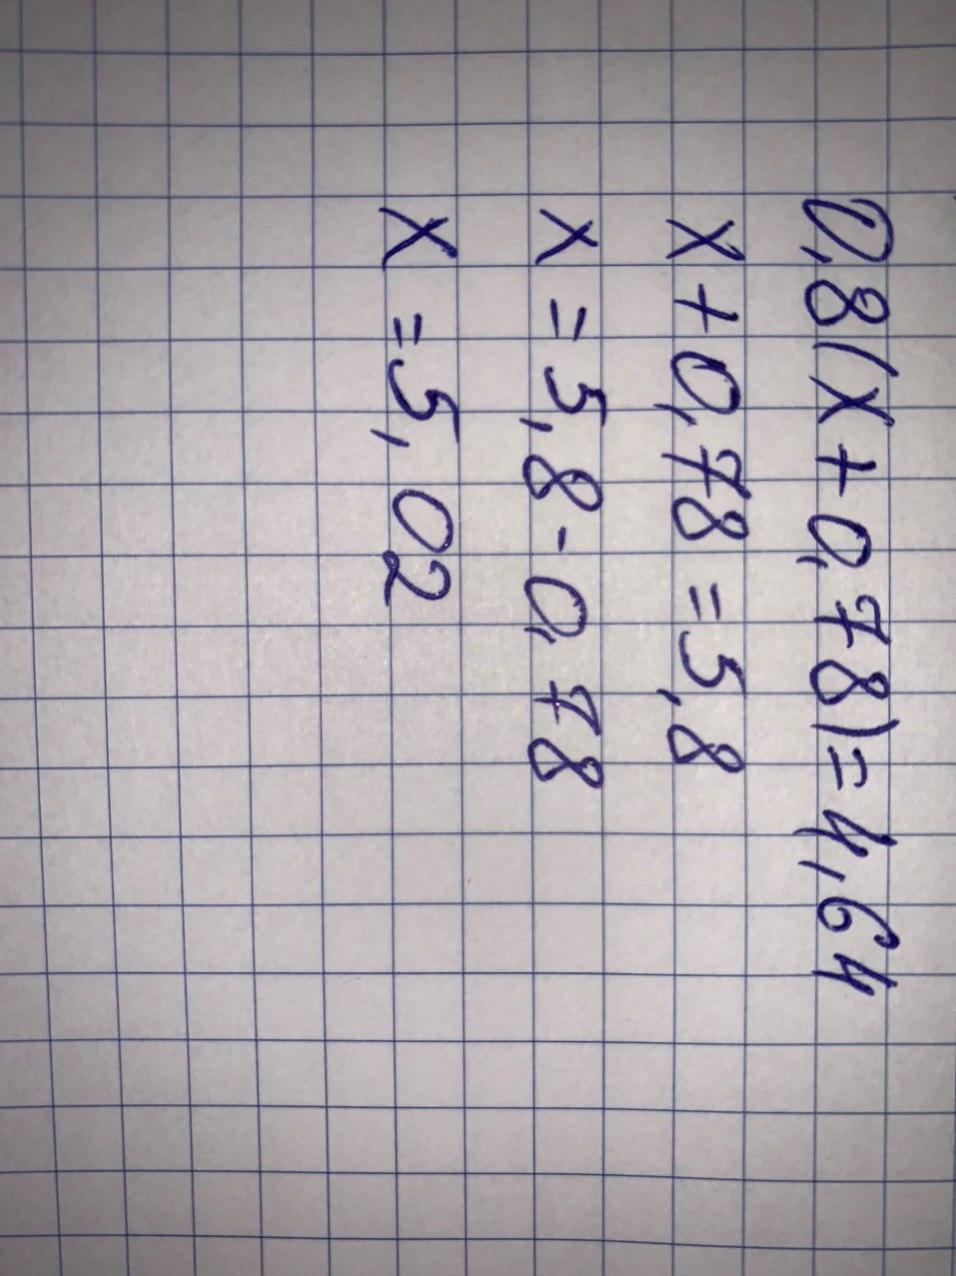 0,8(x+0,78)=4,64
x+0,78=5,8
x=5,8-0,78
x=5,02